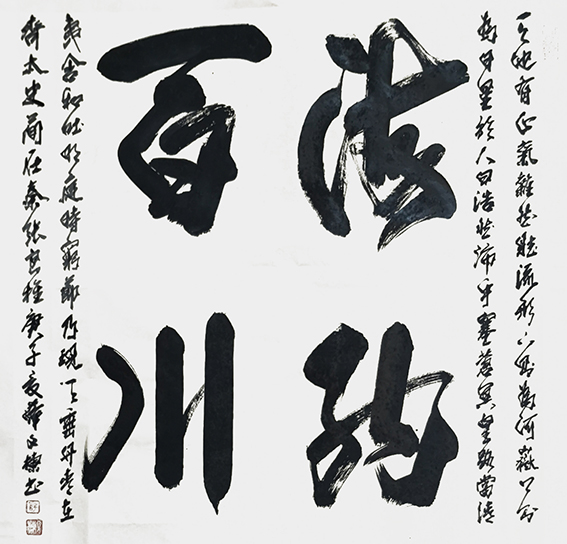 天地有正氣雜然賦流形下則為河嶽上則
為日星於人曰浩然沛乎塞蒼冥皇路當清
海納
百川
夷含和吐明庭時窮節乃現一一垂丹青在
齊太史簡在秦張良椎庚子夏書